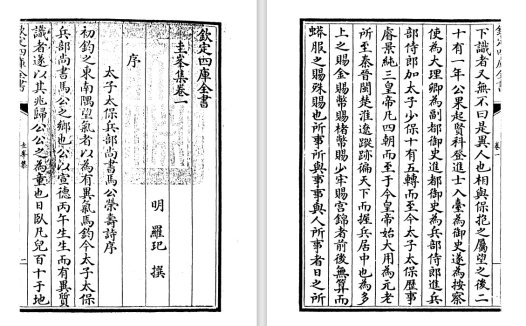 欽定四庫全書
圭峯集卷一
明 羅玘 撰
序
太子太保兵部尚書馬公榮壽詩序
初鈞之東南隅望氣者以為有異氣焉鈞今太子太保
兵部尚書馬公之鄉也公以宣德丙午生生而有異質
識者遂以其兆歸公公之為童也日臥凡兒百十于地
欽定四庫全書
圭峯集
卷一
下識者又無不曰是異人也相與保抱之屬望之後二
十有一年公果起賢科登進士入臺為御史遂為按察
使為大理卿為副都御史進都御史為兵部侍郎進兵
部侍郎加太子少保十有五轉而至今太子太保歷事
睿景純三皇帝凡四朝而至于今皇帝始大用為元老
所至秦晉閩楚淮遼蹤跡徧天下而握兵居中也為多
上之賜金賜幣賜楮幣賜少牢賜宮錦者前後無算而
蟒服之賜殊賜也所事所與事事與人所事者日之所